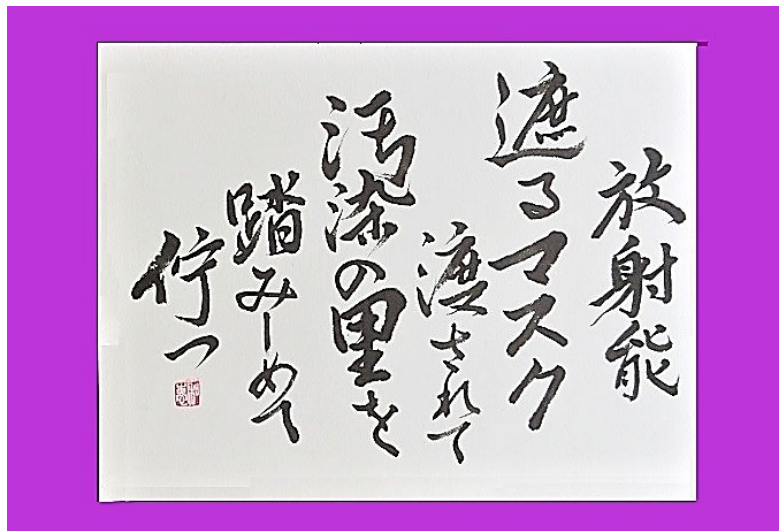 放射能
遮るマスク
渡されて
汚染の里を
踏みしめて
佇つ